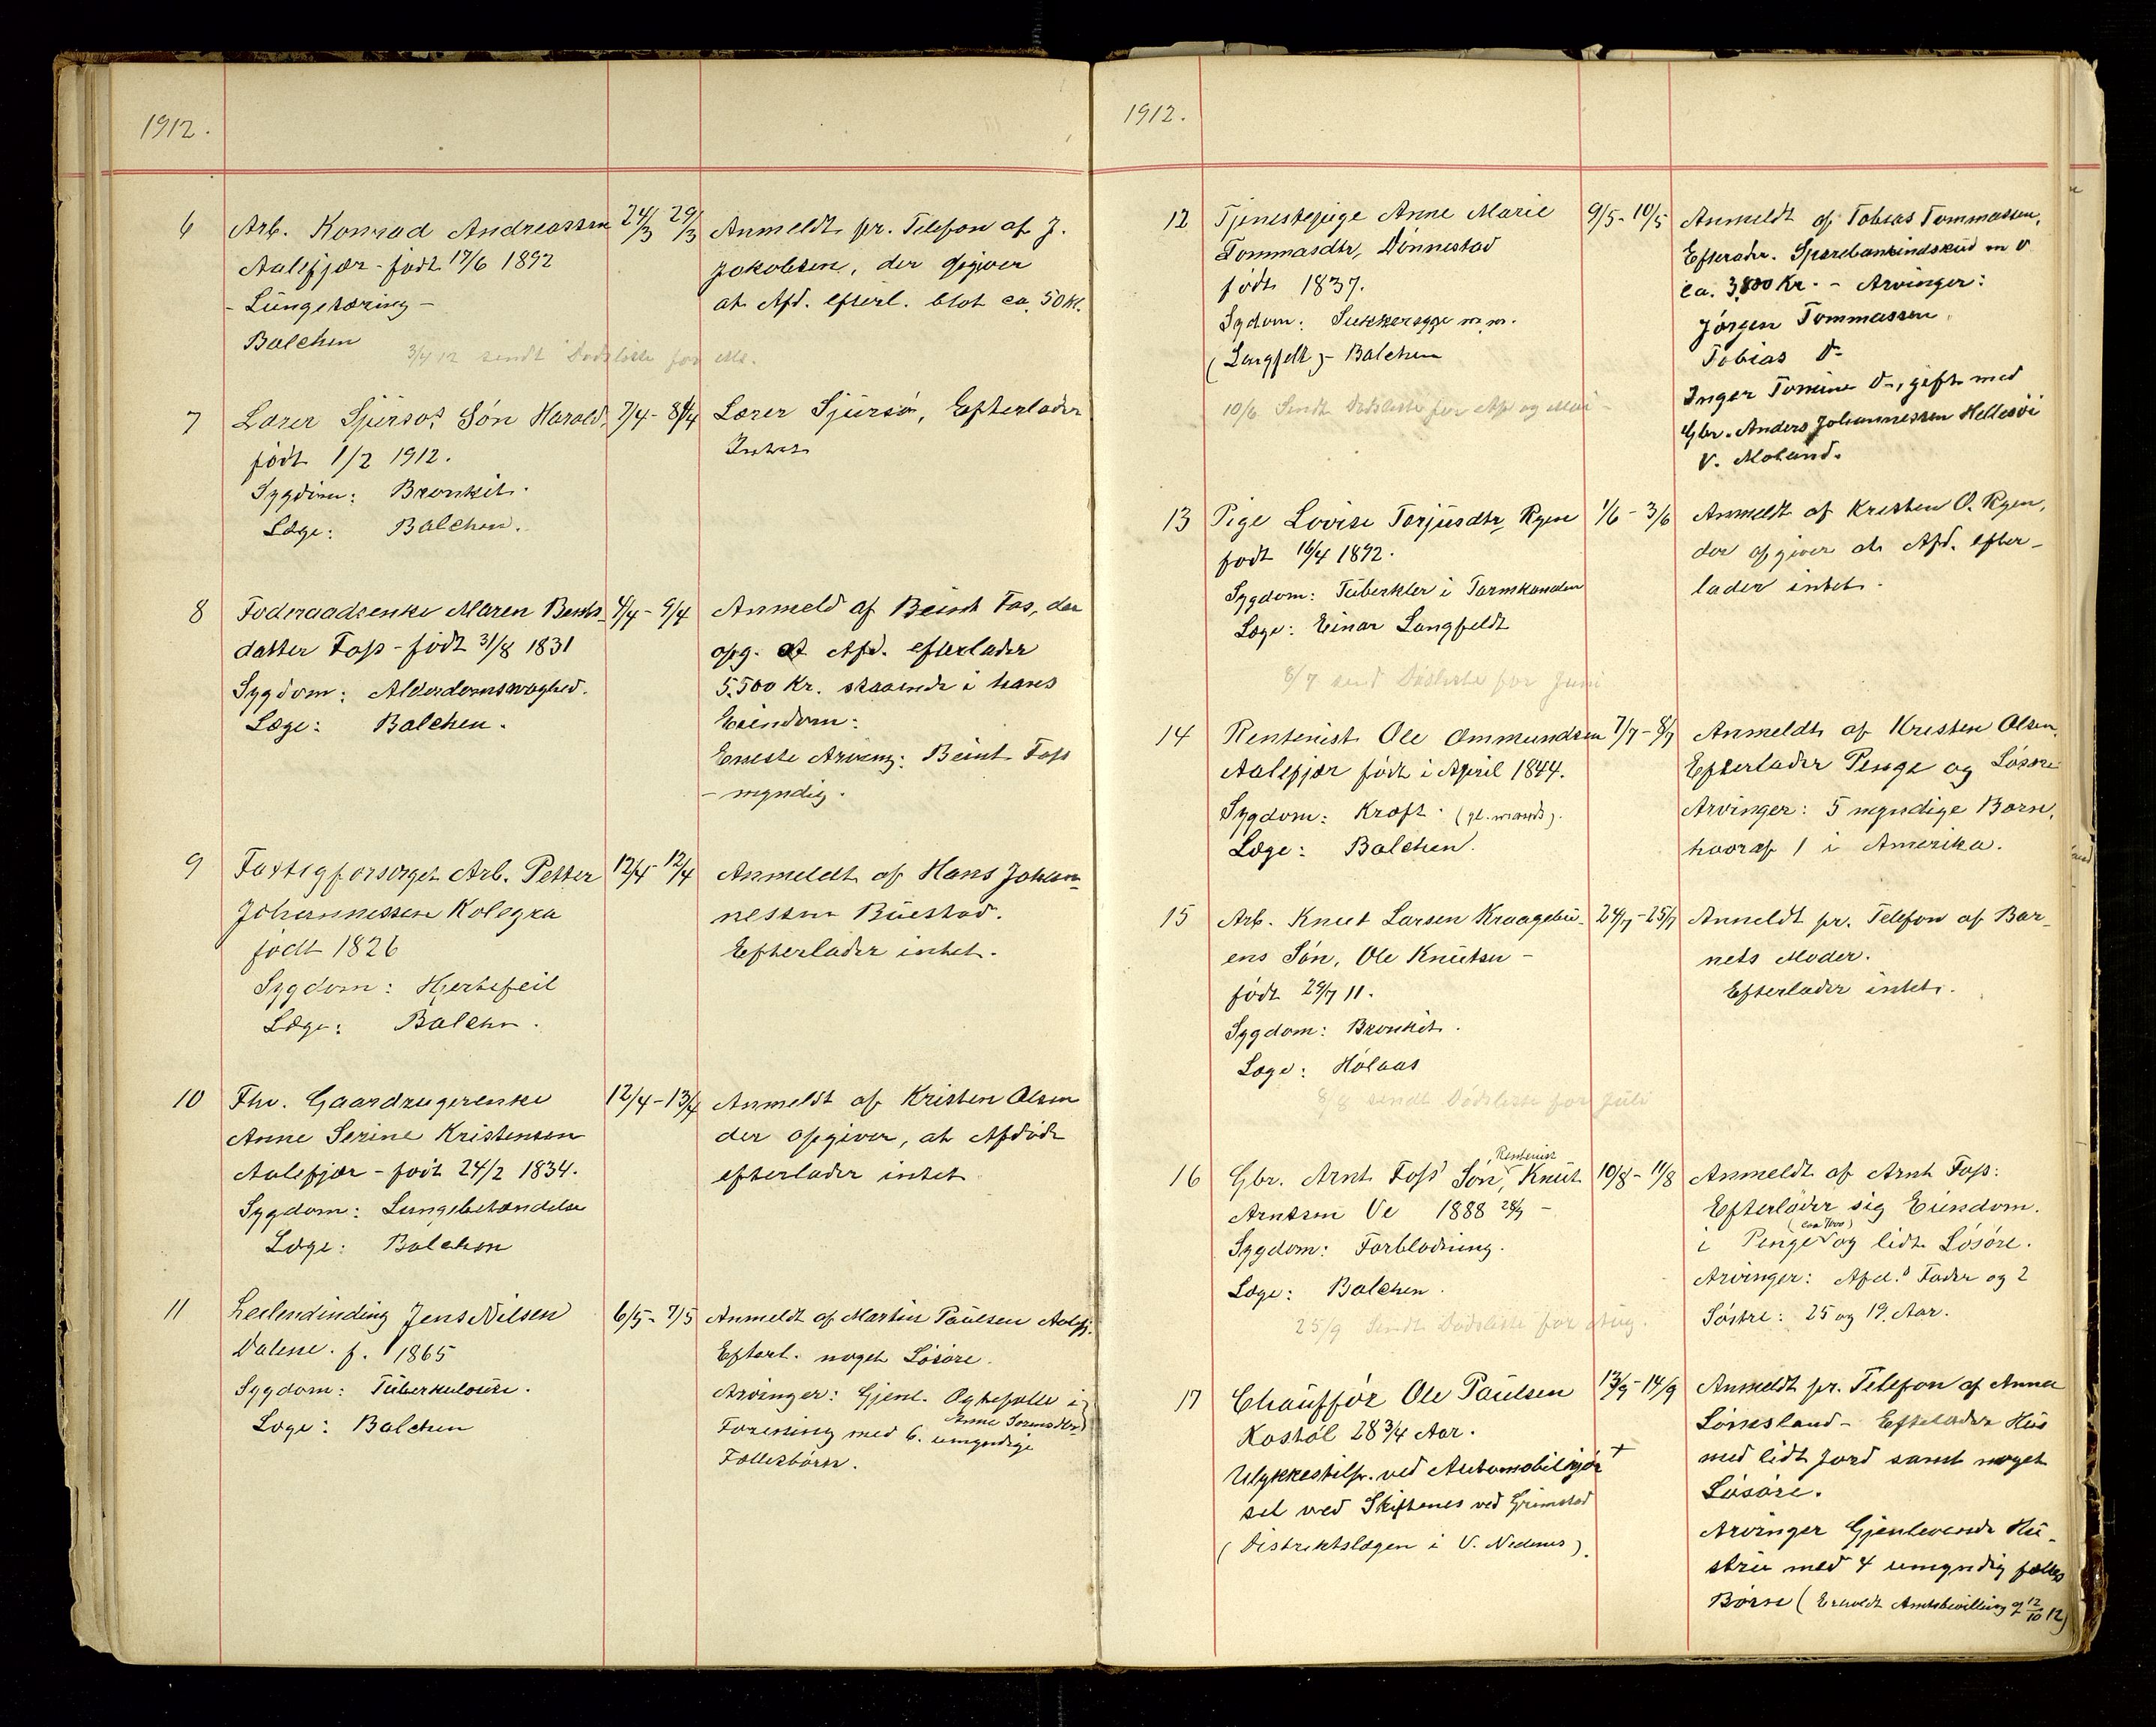 1912.
6 Arb. Konrad Andreassen 24/3 29/3 Anmeldt pr. Telefon af J.
Aalefjær - født 17/6 1892 Jakobsen, der opgiver
- Lungetæring - at Afd. efterl. blot ca. 50 Kr.
Balchen
3/4 12 sendt Dødsliste for
7 Lærer Sjursøs Søn Harald, 7/4 - 8/4 Lærer Sjursø, Efterlader
født 1/2 1912. Intet
Sygdom: Bronkit.
Læge: Balchen.
8 Føderaadsenke Maren Bents- 4/4 - 9/4 Anmeld af Beint Fos, der
datter Foss - født 31/8 1831 opg. at Afd. efterlader
Sygdom: Alderdomsvaghed. 5.500 Kr. staaende i hans
Læge: Balchen. Eiendom:
Eneste Arving: Beint Foss
- myndig.
9 Fattigforsørget Arb. Petter 12/4 - 12/4 Anmeldt af Hans Johan-
Johannessen Kolegra nessen Buestad.
født 1826 Efterlader intet.
Sygdom: Hjertefeil
Læge: Balchen.
10 Fhv. Gaardbrugerenke 12/4 - 13/4 Anmeldt af Kristen Olsen
Anne Serine Kristensen der opgiver, at Afdøde
Aalefjær - født 24/2 1834. efterlader intet
Sygdom: Lungebetændelse
Læge: Balchen
11 Leilending Jens Nilsen 6/5 - 7/5 Anmeldt af Martin Paulsen Aalefj.
Dalene. f. 1865 Efterl. noget Løsøre.
Sygdom: Tuberkulose. Arvinger: Gjenl. Ægtefælle
Læge: Balchen Anne
Forening med 6. umyndige
Fællesbørn.
1912.
12 Tjenestepige Anne Marie 9/5 - 10/5 Anmeldt af Tobias Tommassen.
Tommasdtr, Dønnestad Efterlader. Sparebankindskud
født 1837. ca. 3,800 Kr. - Arvinger:
Sydom: Sukkersyge m.m. Jørgen Tommassen
(Langfelt) - Balchen Tobias Do
10/6 Sendt Dødsliste for Ap og Mai - Inger Tomine Do, gift med
Gbr. Anders Johannessen Hellesøi
V. Moland.
13 Pige Lovise Torjusdtr Ryen 1/6 - 3/6 Anmeldt af Kristen O. Ryen,
født 16/4 1892. der opgiver at Afd. efter-
Sygdom: Tuberkler i Tarmkanalen lader intet.
Læge: Einar Langfeldt
8/7 send Dødsliste for Juni
14 Rentenist Ole Ommundsen 7/7 - 8/7 Anmeldt af Kristen Olsen.
Aalefjær født i April 1844. Efterlader Penge og Løsøre
Sygdom: Kræft. Arvinger: 5 myndige Børn,
Læge: Balchen. hvoraf 1 i Amerika.
15 Arb. Knut Larsen Kraagebu- 24/7 - 25/7 Anmeldt pr. Telefon af Bar-
ens Søn, Ole Knutsen - nets Moder.
født 29/7 11. Efterlader intet.
Sygdom: Bronkit.
Læge: Hølaas
8/8 sendt Dødsliste for Juli
16 Gbr. Arnt Foss' Søn, Rentenist Knut 10/8 - 11/8 Anmeldt af Arnt Foss:
Arntsen Ve 1888 28/7 - Efterlader sig Eiendom.
Sygdom: Forblødning. i Penge (ca 7000) og lidt Løsøre.
Læge: Balchen. Arvinger: Afd.s Fader og 2
25/9 Sendt Dødsliste for Aug. Søstre: 25 og 19. Aar.
17 Chauffør Ole Paulsen 13/9 - 14/9 Anmeldt pr. Telefon af Anna
Kostøl 28 3/4 Aar. Lømsland - Efterlader Hus
Ulykkestilf. ved Automobilkjør + med lidt Jord samt noget
sel ved Skiftenes ved Grimstad Løsøre.
(Distriktslægen i V. Nedenes). Arvinger Gjenlevende Hu-
stru med 4 umyndig fælles
Børn (Erholdt Amtsbevilling af 12/10 12)